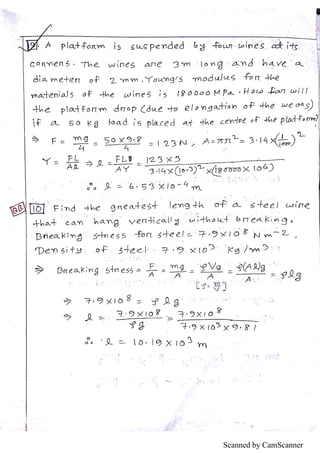 9. A platform is suspended by four wires at its
corners. The wires are 3m long and have a
diameter of 2 mm. Young's modulus for the
materials of the wires is 180000 MPa. How far will
the platform drop (due to elongation of the
if a 50 kg load is placed at the centre of the platform?
⇒ F = mg/4 = 50×9.8/4 = 123N, A = πr² = 3.14×(1/1000)²
Y = FL/Al ⇒ l = FL/AY = 123×3/3.14×(10⁻³)²×(180000×10⁶)
∴ l = 6.53×10⁻⁴ m
10 Find the greatest length of a steel wire
that can hang vertically without breaking.
Breaking stress for steel = 7.9×10⁸ Nm⁻².
Density of steel = 7.9×10³ kg/m³.
⇒ Breaking stress = F/A = mg/A = ρVg/A = ρ(Al)g/A = ρlg
⇒ 7.9×10⁸ = ρlg
⇒ l = 7.9×10⁸/ρg = 7.9×10⁸/7.9×10³×9.81
∴ l = 10.19×10³ m
Scanned by CamScanner